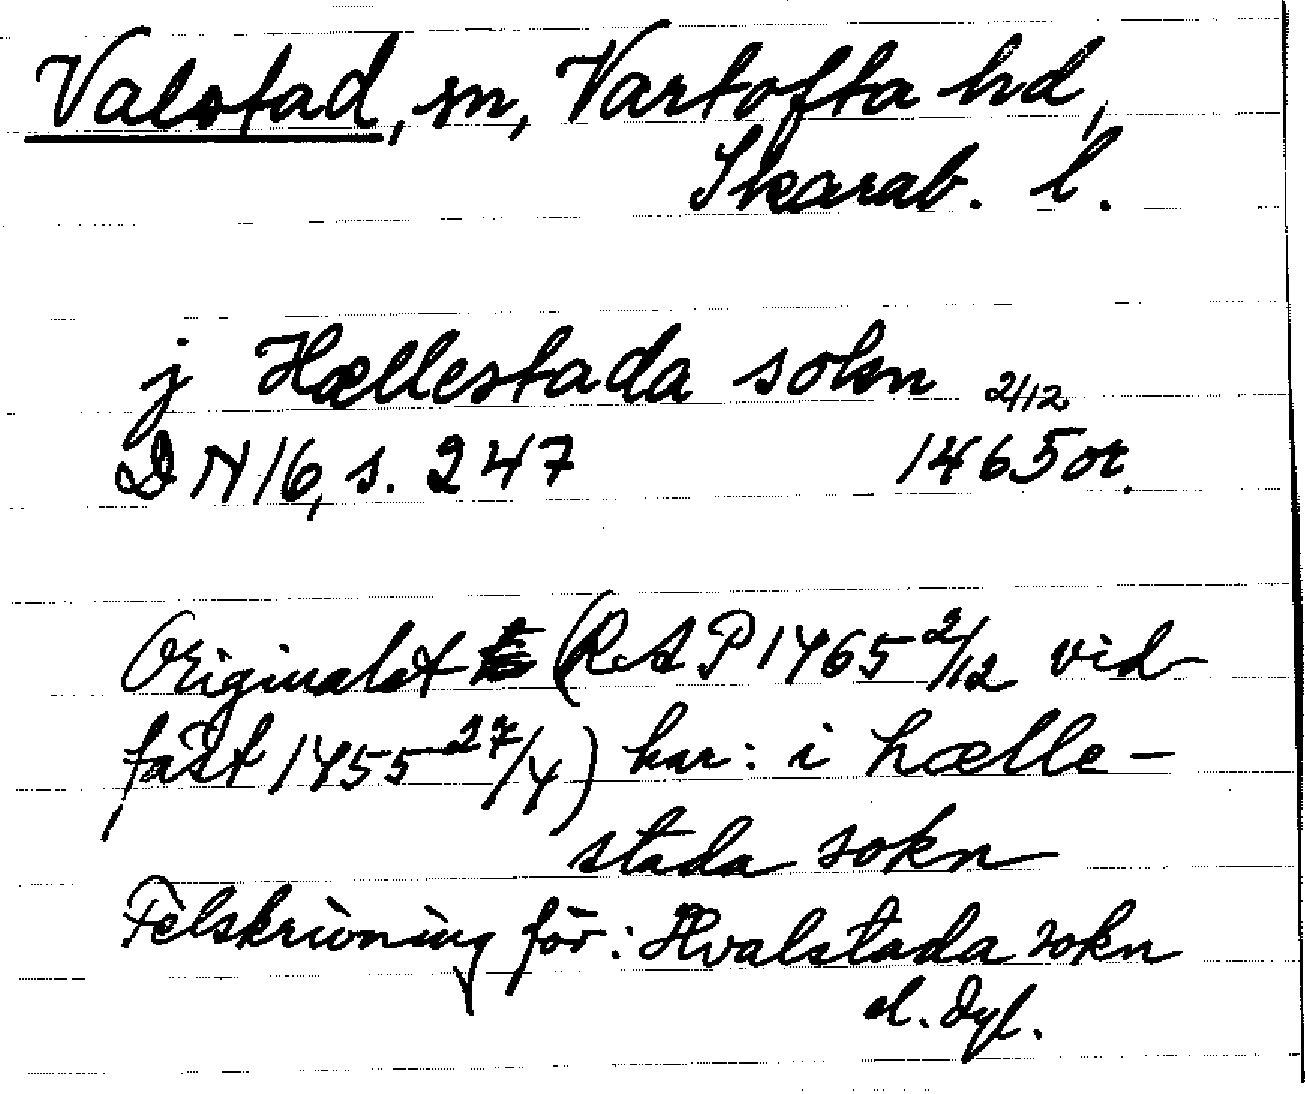 Valstad, sn, Vartofta hd,
Skarab. l.
j Hællestada sokn 2/12
DN 16, s. 247 1465 or.
Originalet (RAP 1465 2/12 vid
fäst 1455 27/4) har: i hælle-
stada sokn
Felskrivning för: Hvalstada sokn
el. dyl.